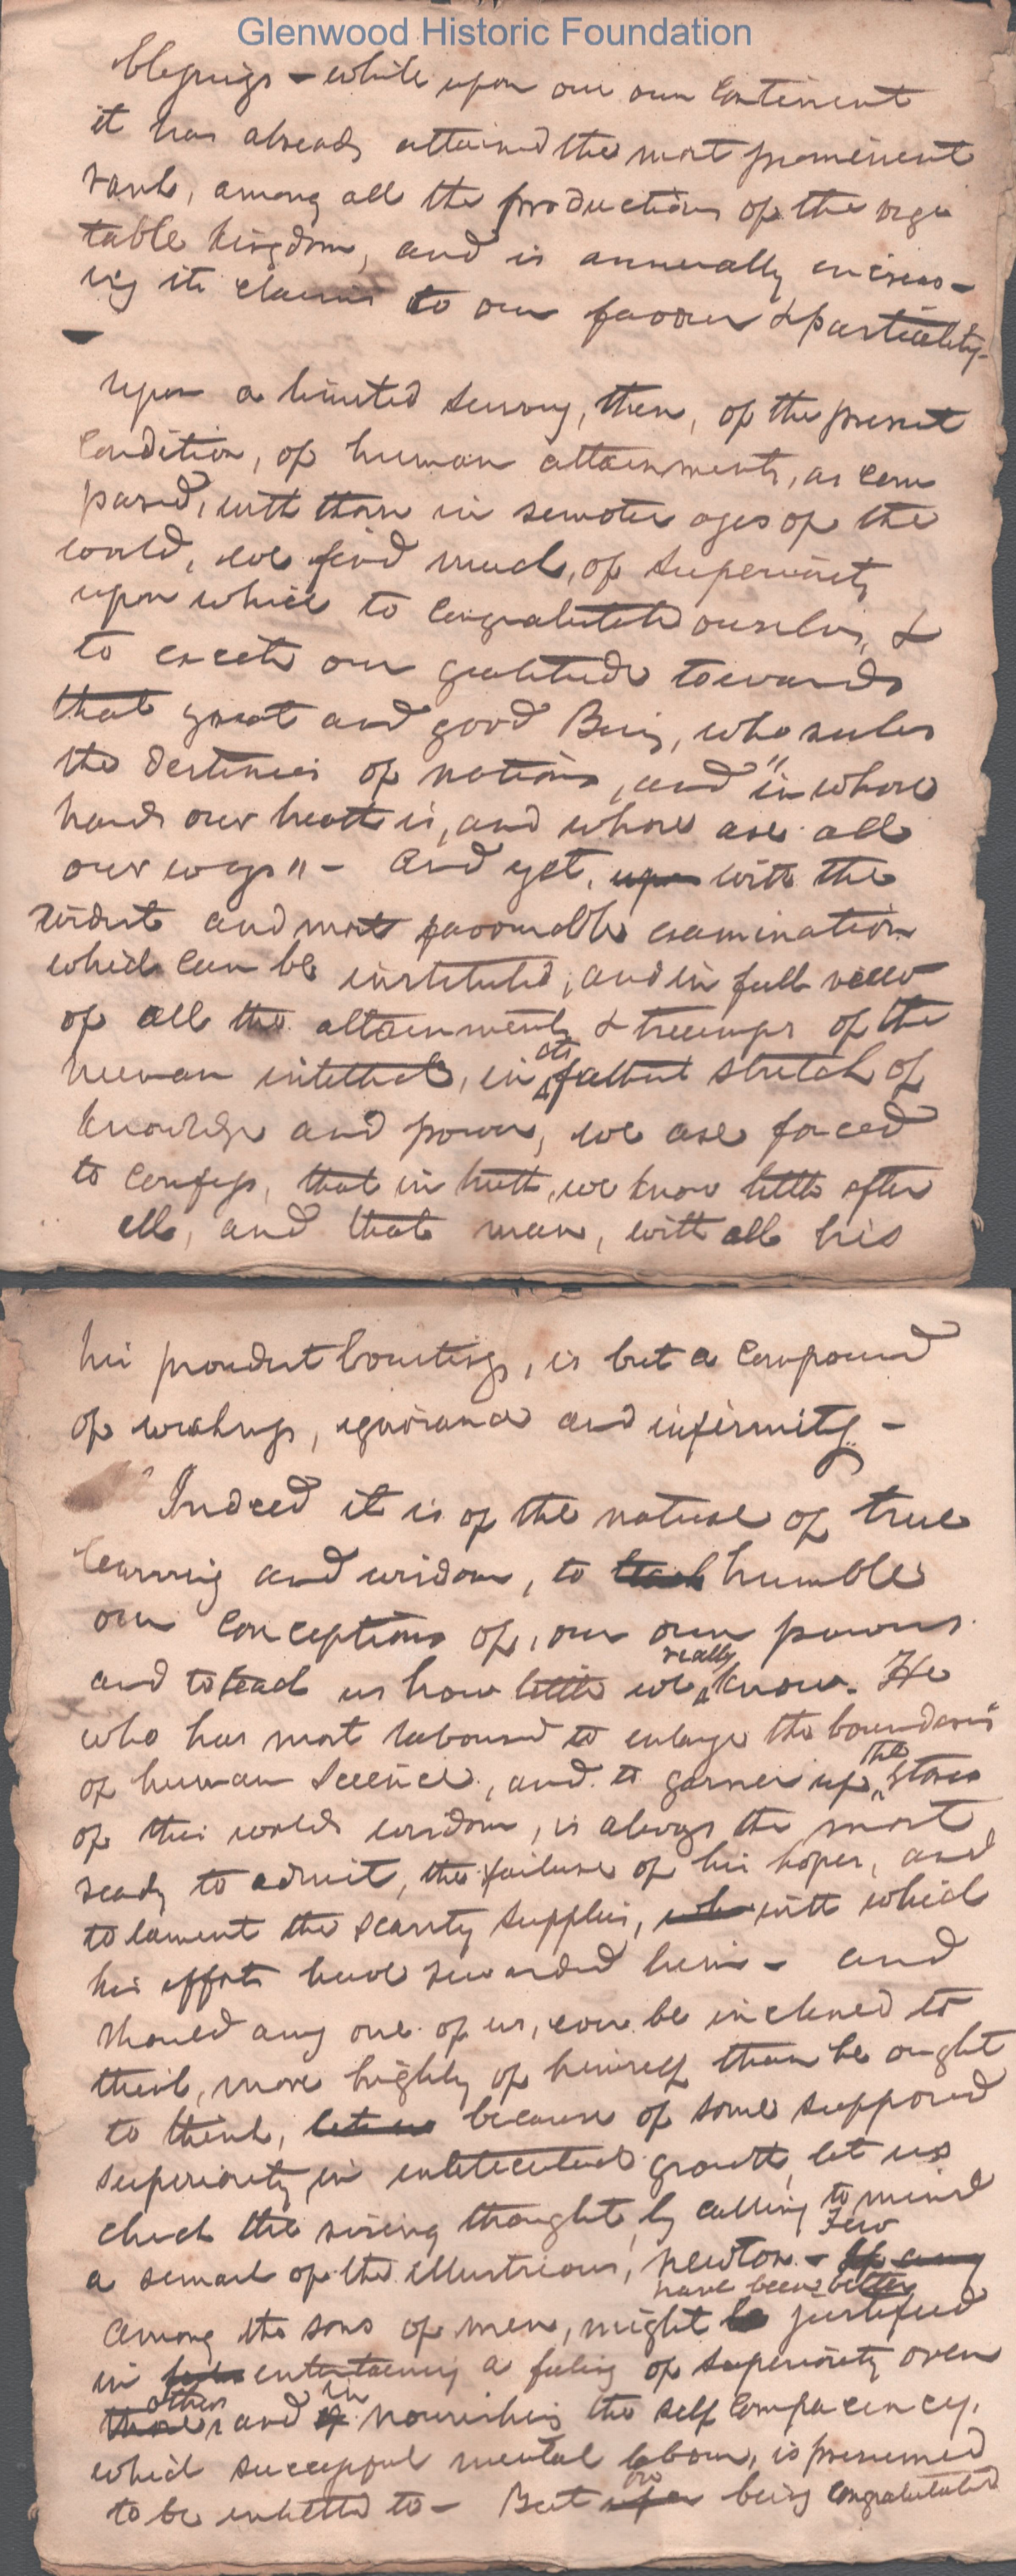 Glenwood Historic Foundation
blessings – while upon our own Continent
it has already attained the most prominent
rank, among all the productions of the vege
table kingdom, and is annually increas-
ing its claims to our favour & partiality-
Upon a limited survey, then, of the present
Condition, of human attainments, as com
pared, with those in remoter ages of the
world, we find much, of superiority
upon which to congratulate ourselves, &
to excite our gratitude towards
that great and good Being, who rules
the destinies of nations, and "in whose
hands our breath is, and whose are all
our ways" – And yet, upon with the
widest and most favourable examination
which can be instituted, and in full view
of all the attainments & triumps of the
human intellect, in its fullest stretch of
knowledge and power, we are forced
to confess, that in truth, we know little after
all, and that man, with all his
his proudest boastings, is but a Compound
of weakness, ignorance and infirmity –
Indeed it is of the nature of true
learning and wisdom, to teach humble
our Conceptions of, our own powers
and to teach us how little we really know. He
who has most laboured to enlarge the boundaries
of human Science, and to garner up the stores
of this worlds wisdom, is always the most
ready to admit, the failure of his hopes, and
to lament the scanty supplies, with which
his efforts have rewarded him – and
should any one of us, ever be inclined to
think, more highly of himself than he ought
to think, let us because of some supposed
superiority in intellectual growth, let us
check the rising thought, by calling to mind
a remark of the illustrious, Newton – If any Few
among the sons of men, might be have been better justified
in entertaining a feeling of superiority over
those others, and of in nourishing the self complacency,
which successful mental labour, is presumed
to be entitled to – But upon on being congratulated